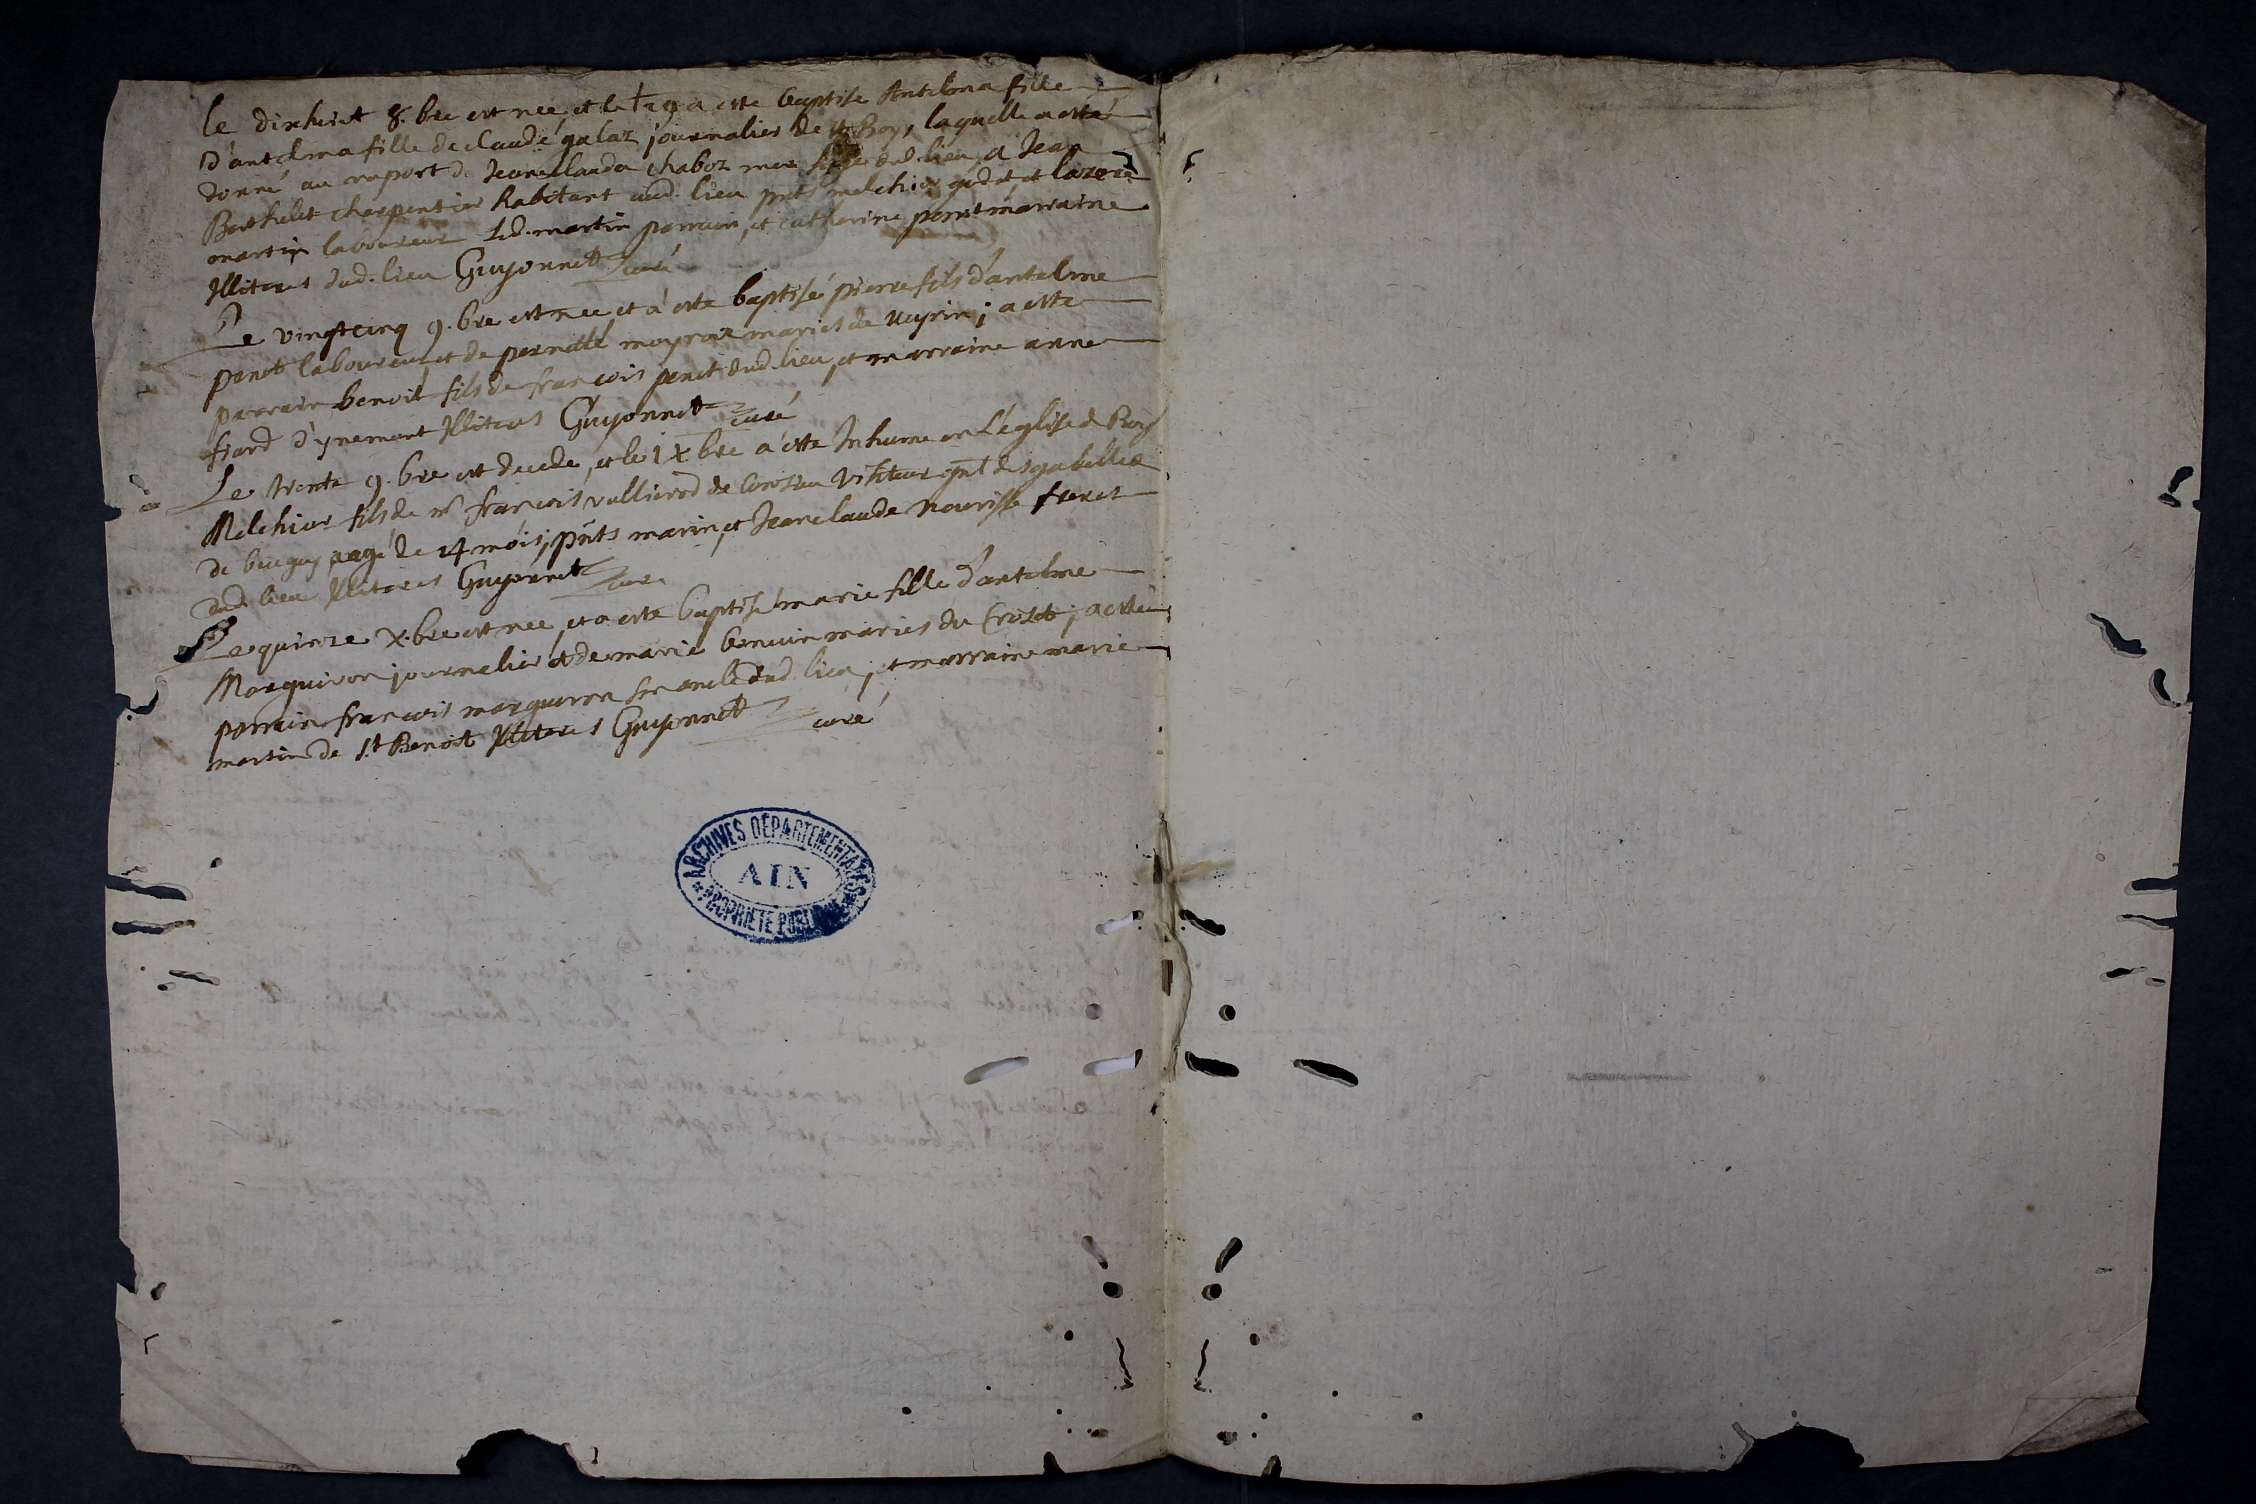 le dixhuit 8.bre est nee et le 29 a esté baptisé Antelma fille
d'antelma fille de claude galaz journalier de Boys laquelle a esté
donné au raport de Jeane clauda chaboz mere dud. lieu a Jean
Berthelet charpentier habitant aud. lieu pnts melchior godet et
martin laboureur led. martin parrain, et catherine penet marraine
Illiteres dud. lieu Guyonnet curé
Le vingtcinq 9.bre est nee et a esté baptisé pierre fils d'antelme
penet laboureur, et de pernette moyroux maries de veyrin; a esté
parrain benoit fils de françois penet dud. lieu, et marraine anne
fiard d'ynemont Illiteres Guyonnet curé
Le trente 9.bre est decede, et le 1 Xbre a esté Inhume en L'eglise de Boys
Melchior fils de mr françois vullierod de visiteur gnl des gabelles
de beugey aagé de 14 mois, pnts marin, et Jean claude nourisse freres
dud. lieu Illiteres Guyonnet curé
Le quinze X.bre est nee, et a esté baptisé marie fille d'antelme
Marguiron journalier et de marie benuin maries du Crozet; a esté
parrain françois marguiron son oncle dud. lieu, et marraine marie
martin de St Benoist Illiteres Guyonnet curé
ARCHIVES DEPARTEMENTALES
AIN
PROPRIETE PUBLIQUE